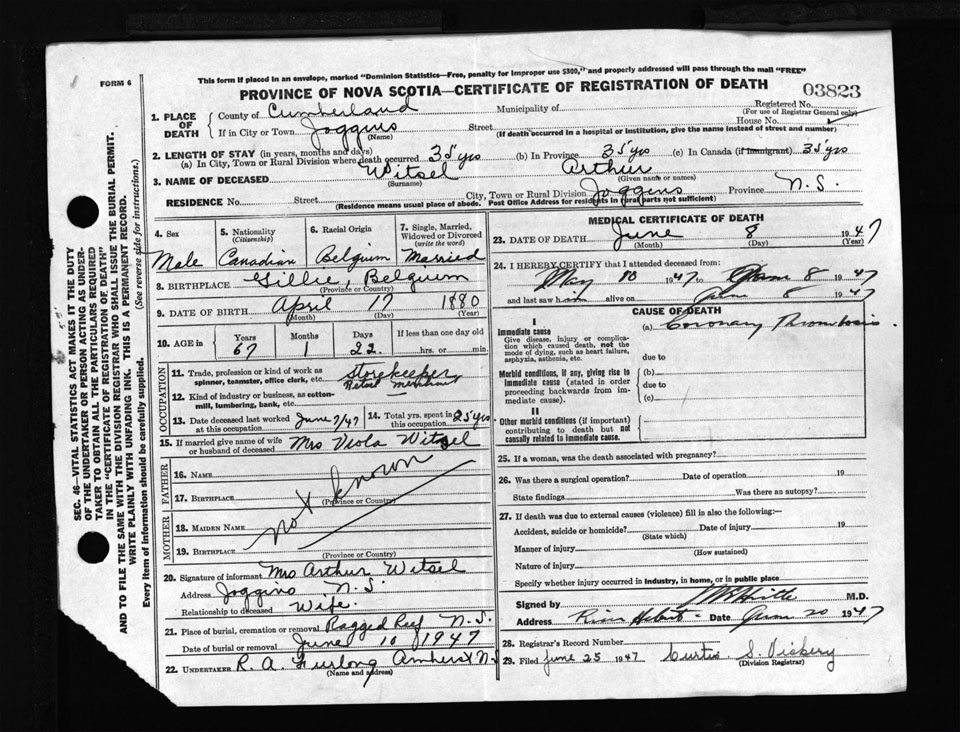 FORM 6
This form if placed in an envelope, marked "Dominion Statistics—Free, penalty for improper use $300," and properly addressed will pass through the mail "FREE"
PROVINCE OF NOVA SCOTIA—CERTIFICATE OF REGISTRATION OF DEATH
03823
1. PLACE OF DEATH
County of Cumberland Municipality of Registered No.
(For use of Registrar General only)
If in City or Town Joggins Street House No.
(Name) (If death occurred in a hospital or institution, give the name instead of street and number)
2. LENGTH OF STAY (in years, months and days)
(a) In City, Town or Rural Division where death occurred 35 yrs (b) In Province 35 yrs (c) In Canada (if immigrant) 35 yrs
3. NAME OF DECEASED Witsel Arthur
(Surname) (Given name or names)
RESIDENCE No. Street City, Town or Rural Division Joggins Province N.S.
(Residence means usual place of abode. Post Office Address for residents in rural parts not sufficient)
4. Sex Male
5. Nationality (Citizenship) Canadian
6. Racial Origin Belgium
7. Single, Married, Widowed or Divorced (write the word) Married
8. BIRTHPLACE Gillie, Belguim
(Province or Country)
9. DATE OF BIRTH April 17 1880
(Month) (Day) (Year)
10. AGE in Years Months Days If less than one day old
67 1 22 hrs. or min.
OCCUPATION
11. Trade, profession or kind of work as spinner, teamster, office clerk, etc. Storekeeper
12. Kind of industry or business, as cotton-mill, lumbering, bank, etc. Retail Merchant
13. Date deceased last worked at this occupation June 7/47
14. Total yrs. spent in this occupation 25 yrs.
15. If married give name of wife or husband of deceased Mrs Viola Witsel
FATHER
16. Name
17. Birthplace
(Province or Country)
not known
MOTHER
18. MAIDEN NAME
19. BIRTHPLACE
(Province or Country)
20. Signature of informant Mrs Arthur Witsel
Address Joggins N.S.
Relationship to deceased Wife.
21. Place of burial, cremation or removal Ragged Reef N.S.
Date of burial or removal June 10 1947
22. UNDERTAKER R. A. Furlong Amherst N.S
(Name and address)
MEDICAL CERTIFICATE OF DEATH
23. DATE OF DEATH June 8 1947
(Month) (Day) (Year)
24. I HEREBY CERTIFY that I attended deceased from:
May 10 1947 to June 8 1947
and last saw him alive on June 8 1947
CAUSE OF DEATH
I
Immediate cause
Give disease, injury or complication which caused death, not the mode of dying, such as heart failure, asphyxia, asthenia, etc.
(a) Coronary Thrombosis.
due to
Morbid conditions, if any, giving rise to immediate cause (stated in order proceeding backwards from immediate cause).
(b)
due to
(c)
II
Other morbid conditions (if important) contributing to death but not causally related to immediate cause.
25. If a woman, was the death associated with pregnancy?
26. Was there a surgical operation? Date of operation 19
State findings Was there an autopsy?
27. If death was due to external causes (violence) fill in also the following:—
Accident, suicide or homicide? Date of injury 19
(State which)
Manner of injury
(How sustained)
Nature of injury
Specify whether injury occurred in industry, in home, or in public place
Signed by M.D.
Address River Hebert Date June 20 1947
28. Registrar's Record Number
29. Filed June 25 1947 Curtis S. Vickery
(Division Registrar)
SEC. 46—VITAL STATISTICS ACT MAKES IT THE DUTY
OF THE UNDERTAKER OR PERSON ACTING AS UNDER-
TAKER TO OBTAIN ALL THE PARTICULARS REQUIRED
IN THE "CERTIFICATE OF REGISTRATION OF DEATH"
AND TO FILE THE SAME WITH THE DIVISION REGISTRAR WHO SHALL ISSUE THE BURIAL PERMIT.
WRITE PLAINLY WITH UNFADING INK. THIS IS A PERMANENT RECORD.
Every item of information should be carefully supplied. (See reverse side for instructions.)